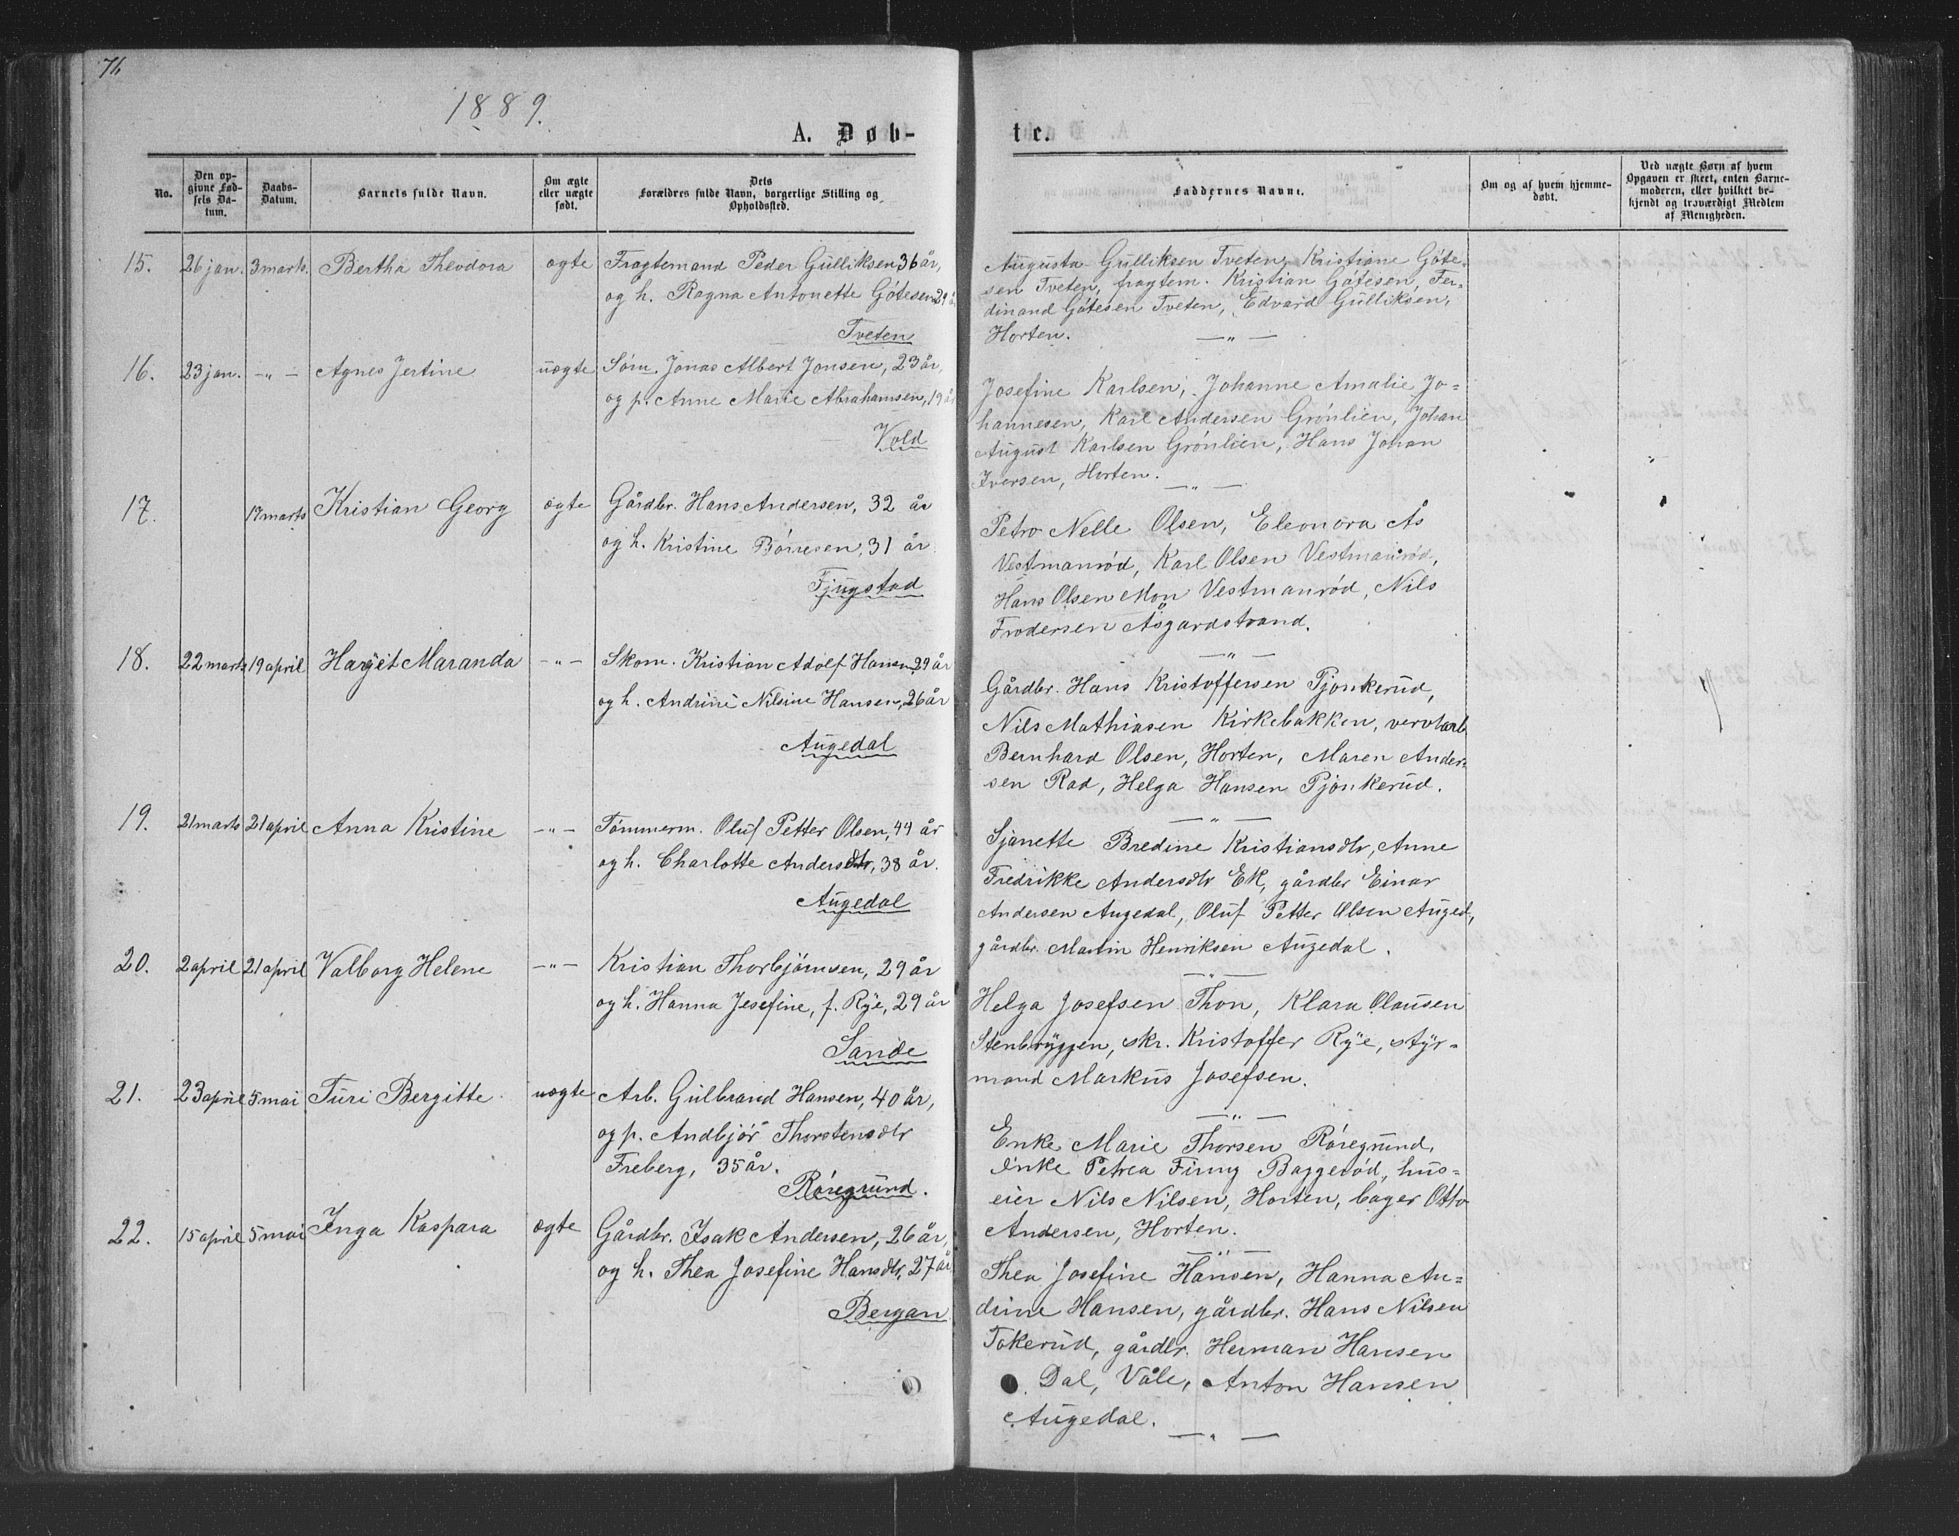 76
1889.
A. Døb-
te.
No.
Den op-
givne Fød-
sels Da-
tum.
Daabs-
Datum.
Barnets fulde Navn.
Om ægte
eller uægte
født.
Dets
Forældres fulde Navn, borgerlige Stilling og
Opholdssted.
Faddernes Navne.
Om og af hvem hjemme-
døbt.
Ved uægte Børn af hvem
Opgaven er skeet, enten Barne-
moderen, eller hvilket be-
kjendt og troværdigt Medlem
af Menigheden.
15. 26 jan. 3 marts. Bertha Theodora ægte Fragtemand Peder Gulliksen 36 år,
og h. Ragna Antonette Gótesen 29 å
Tveten
Augusta Gulliksen Tveten, Kristiane Góte-
sen Tveten, fragtem. Kristian Gótesen, Fer-
dinand Gótesen Tveten, Edvard Gulliksen,
Horten.
— „ —
16. 23 jan. — „ — Agnes Jertine uægte Sóm. Jonas Albert Jonsen, 23 år,
og p. Anne Marie Abrahamsen, 19 år
Vold
Josefine Karlsen, Johanne Amalie Jo-
hannesen, Karl Andersen Grónlien, Johan
August Karlsen Grónlien, Hans Johan
Iversen, Horten.
— „ —
17. 17 marts Kristian Georg ægte Gårdbr. Hans Andersen, 32 år
og h. Kristine Bórresen, 31 år
Fjugstad
Petro Nelle Olsen, Eleonora Ås
Vestmanród, Karl Olsen Vestmanród,
Hans Olsen Mon Vestmanród, Nils
Frodersen Åsgardstrand.
— „ —
18. 22 marts 19 april Harjet Maranda — „ — Skom. Kristian Adolf Hansen 29 år
og h. Andrine Nilsine Hansen, 26 år
Augedal
Gårdbr. Hans Kristoffersen Pjonkerud,
Nils Mathiasen Kirkebakken, vervtarb
Bernhard Olsen, Horten, Maren Ander-
sen Rad, Helga Hansen Pjonkerud.
— „ —
19. 21 marts 21 april Anna Kristine — „ — Tómmerm. Oluf Petter Olsen, 44 år
og h. Charlotte Andersdtr, 38 år.
Augedal
Sjanette Bredine Kristiansdtr, Anne
Fredrikke Andersdtr Ek, gårdbr Einar
Andersen Augedal, Oluf Petter Olsen Auged,
gårdbr. Martin Henriksen Augedal.
— „ —
20. 2 april 21 april Valborg Helene — „ — Kristian Thorbjórnsen, 29 år
og h. Hanna Jesefine, f. Rye, 29 år
Sande
Helga Josefsen Thon, Klara Olausen
Stenbryggen, skr. Kristoffer Rye, styr-
mand Markus Josefsen.
— „ —
21. 23 april 5 mai Turi Bergitte uægte Arb. Gulbrand Hansen, 40 år,
og p. Andbjór Thorstensdtr
Freberg, 35 år.
Róregrund.
Enke Marie Thorsen Róregrund,
enke Petrea Finny Baggeród, hus-
eier Nils Nilsen, Horten, bager Otto
Andersen, Horten.
— „ —
22. 15 april 5 mai Inga Kaspara ægte Gårdbr. Isak Andersen, 26 år,
og h. Thea Josefine Hansdtr, 27 år
Bergan
Thea Josefine Hansen, Hanna An-
drine Hansen, gårdbr. Hans Nilsen
Tokerud, gårdbr. Herman Hansen
Dal, Våle, Anton Hansen
Augedal.
— „ —